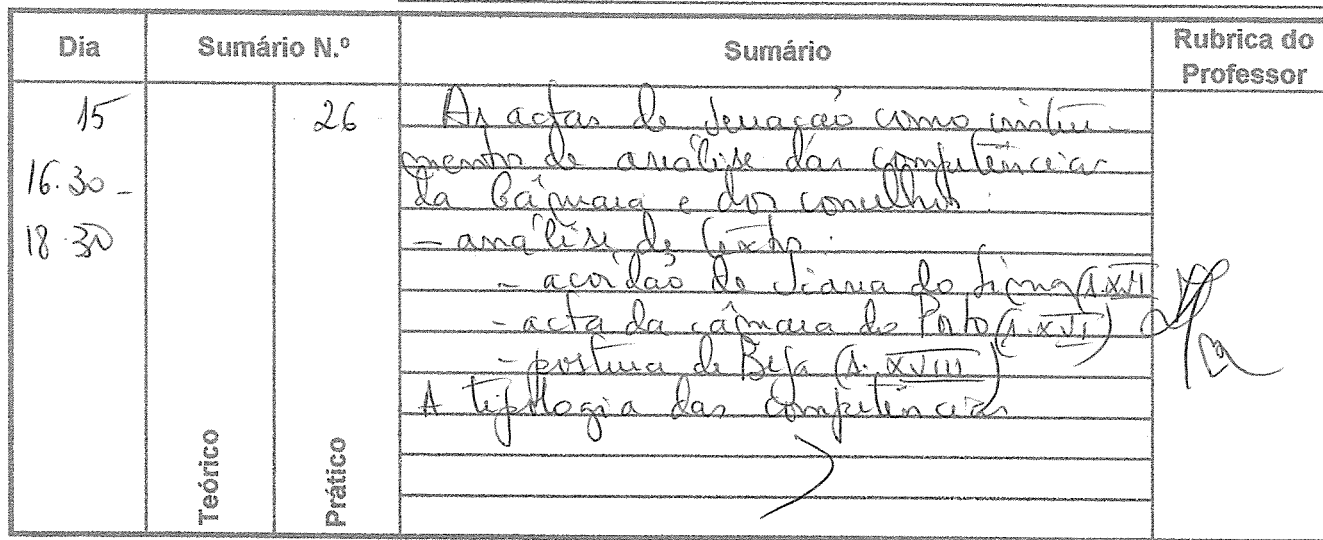 Dia Sumário N.º Sumário Rubrica do Professor
15 26 As actas de vereação como instru-
16.30 - mento de análise das competências
da Câmara e dos concelhos:
18.30 - análise de textos:
- acordão de Viana do Lima (s. XVI)
- acta da câmara do Porto (s. XVI)
- postura de Beja (s. XVIII)
A tipologia das competências
Teórico Prático